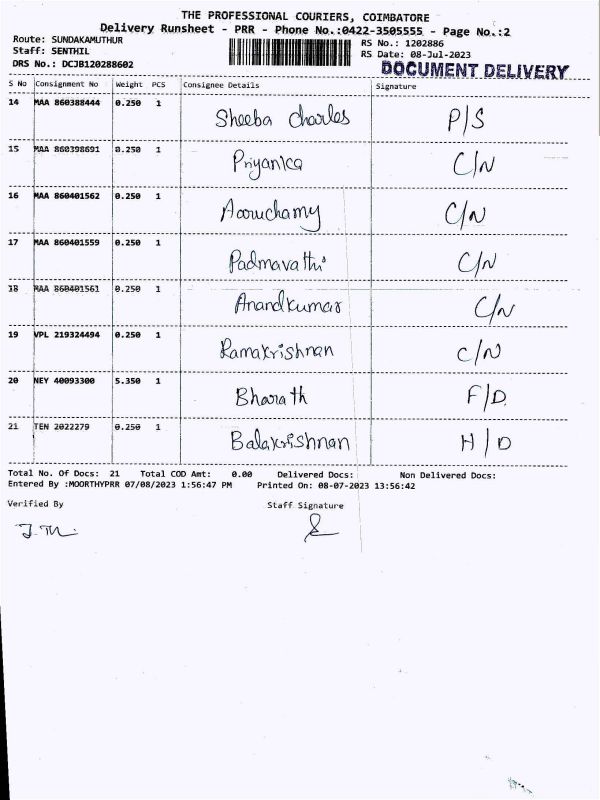 THE PROFESSIONAL COURIERS, COIMBATORE
Delivery Runsheet - PRR - Phone No.:0422-3505555 - Page No.:2
Route: SUNDAKAMUTHUR
RS No.: 1202886
Staff: SENTHIL
RS Date: 08-Jul-2023
DRS No.: DCJB120288602
DOCUMENT DELIVERY
S No Consignment No Weight PCS Consignee Details Signature
14 MAA 860388444 0.250 1 Sheeba Charles P/S
15 MAA 860398691 0.250 1 Priyanka C/N
16 MAA 860401562 0.250 1 C/N
17 MAA 860401559 0.250 1 Padmavathi C/N
18 MAA 860401561 0.250 1 Anandkumar C/N
19 VPL 219324494 0.250 1 Ramakrishnan C/N
20 NEY 40093300 5.350 1 Bharath F/D
21 TEN 2022279 0.250 1 Balakrishnan H/D
Total No. Of Docs: 21 Total COD Amt: 0.00 Delivered Docs: Non Delivered Docs:
Entered By :MOORTHYPRR 07/08/2023 1:56:47 PM Printed On: 08-07-2023 13:56:42
Verified By Staff Signature